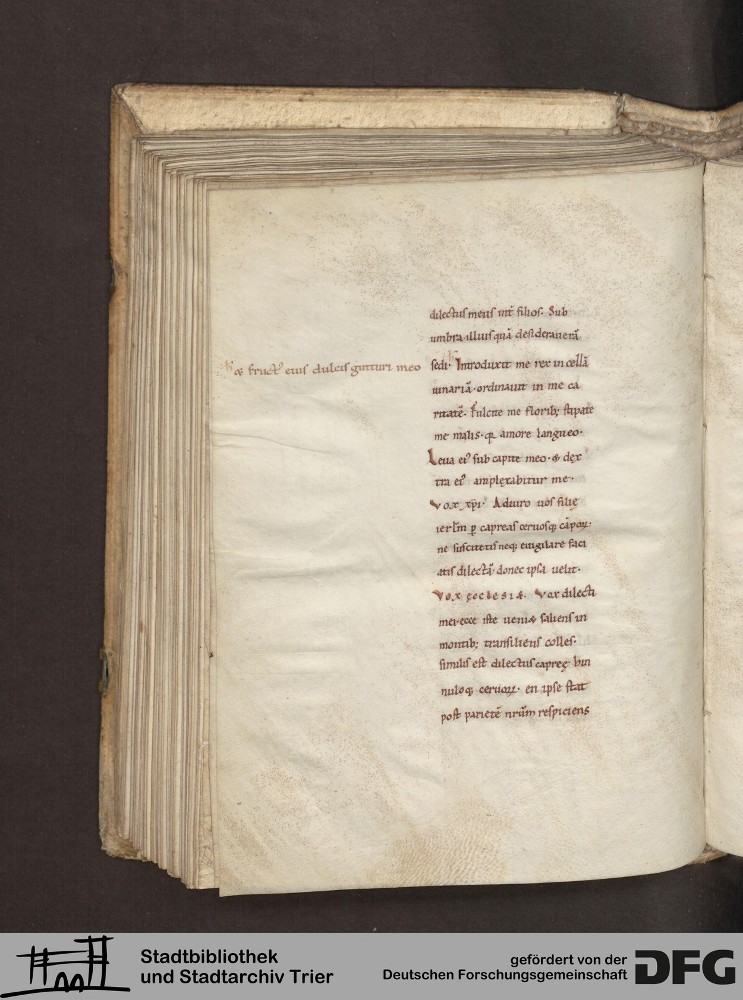 dilectus meus int̄ filios. Sub
umbra illius quā desideraverā
sedi. Introduxit me rex in cellā
& fruct᾽ eius dulcis gutturi meo
uinariā. ordinauit in me ca
ritatē. Fulcite me florib; stipate
me malis. q̄ amore langueo.
Leua ei᾽ sub capite meo. & dex
tra ei᾽ amplexabitur me.
Vox xp̄i. Adiuro uos filię
ierl̄m p̱ capreas ceruosq; cāpoꝝ.
ne suscitetis neq; euigilare faci
atis dilectā. donec ipsa uelit.
Vox ęcclesiæ. Vox dilecti
mei. ecce iste uenit saliens in
montib; transiliens colles.
similis est dilectus capreę hin
nuloq; ceruoꝝ. en ipse stat
post parietē nr̄um respiciens
Stadtbibliothek
und Stadtarchiv Trier
gefördert von der
Deutschen Forschungsgemeinschaft
DFG